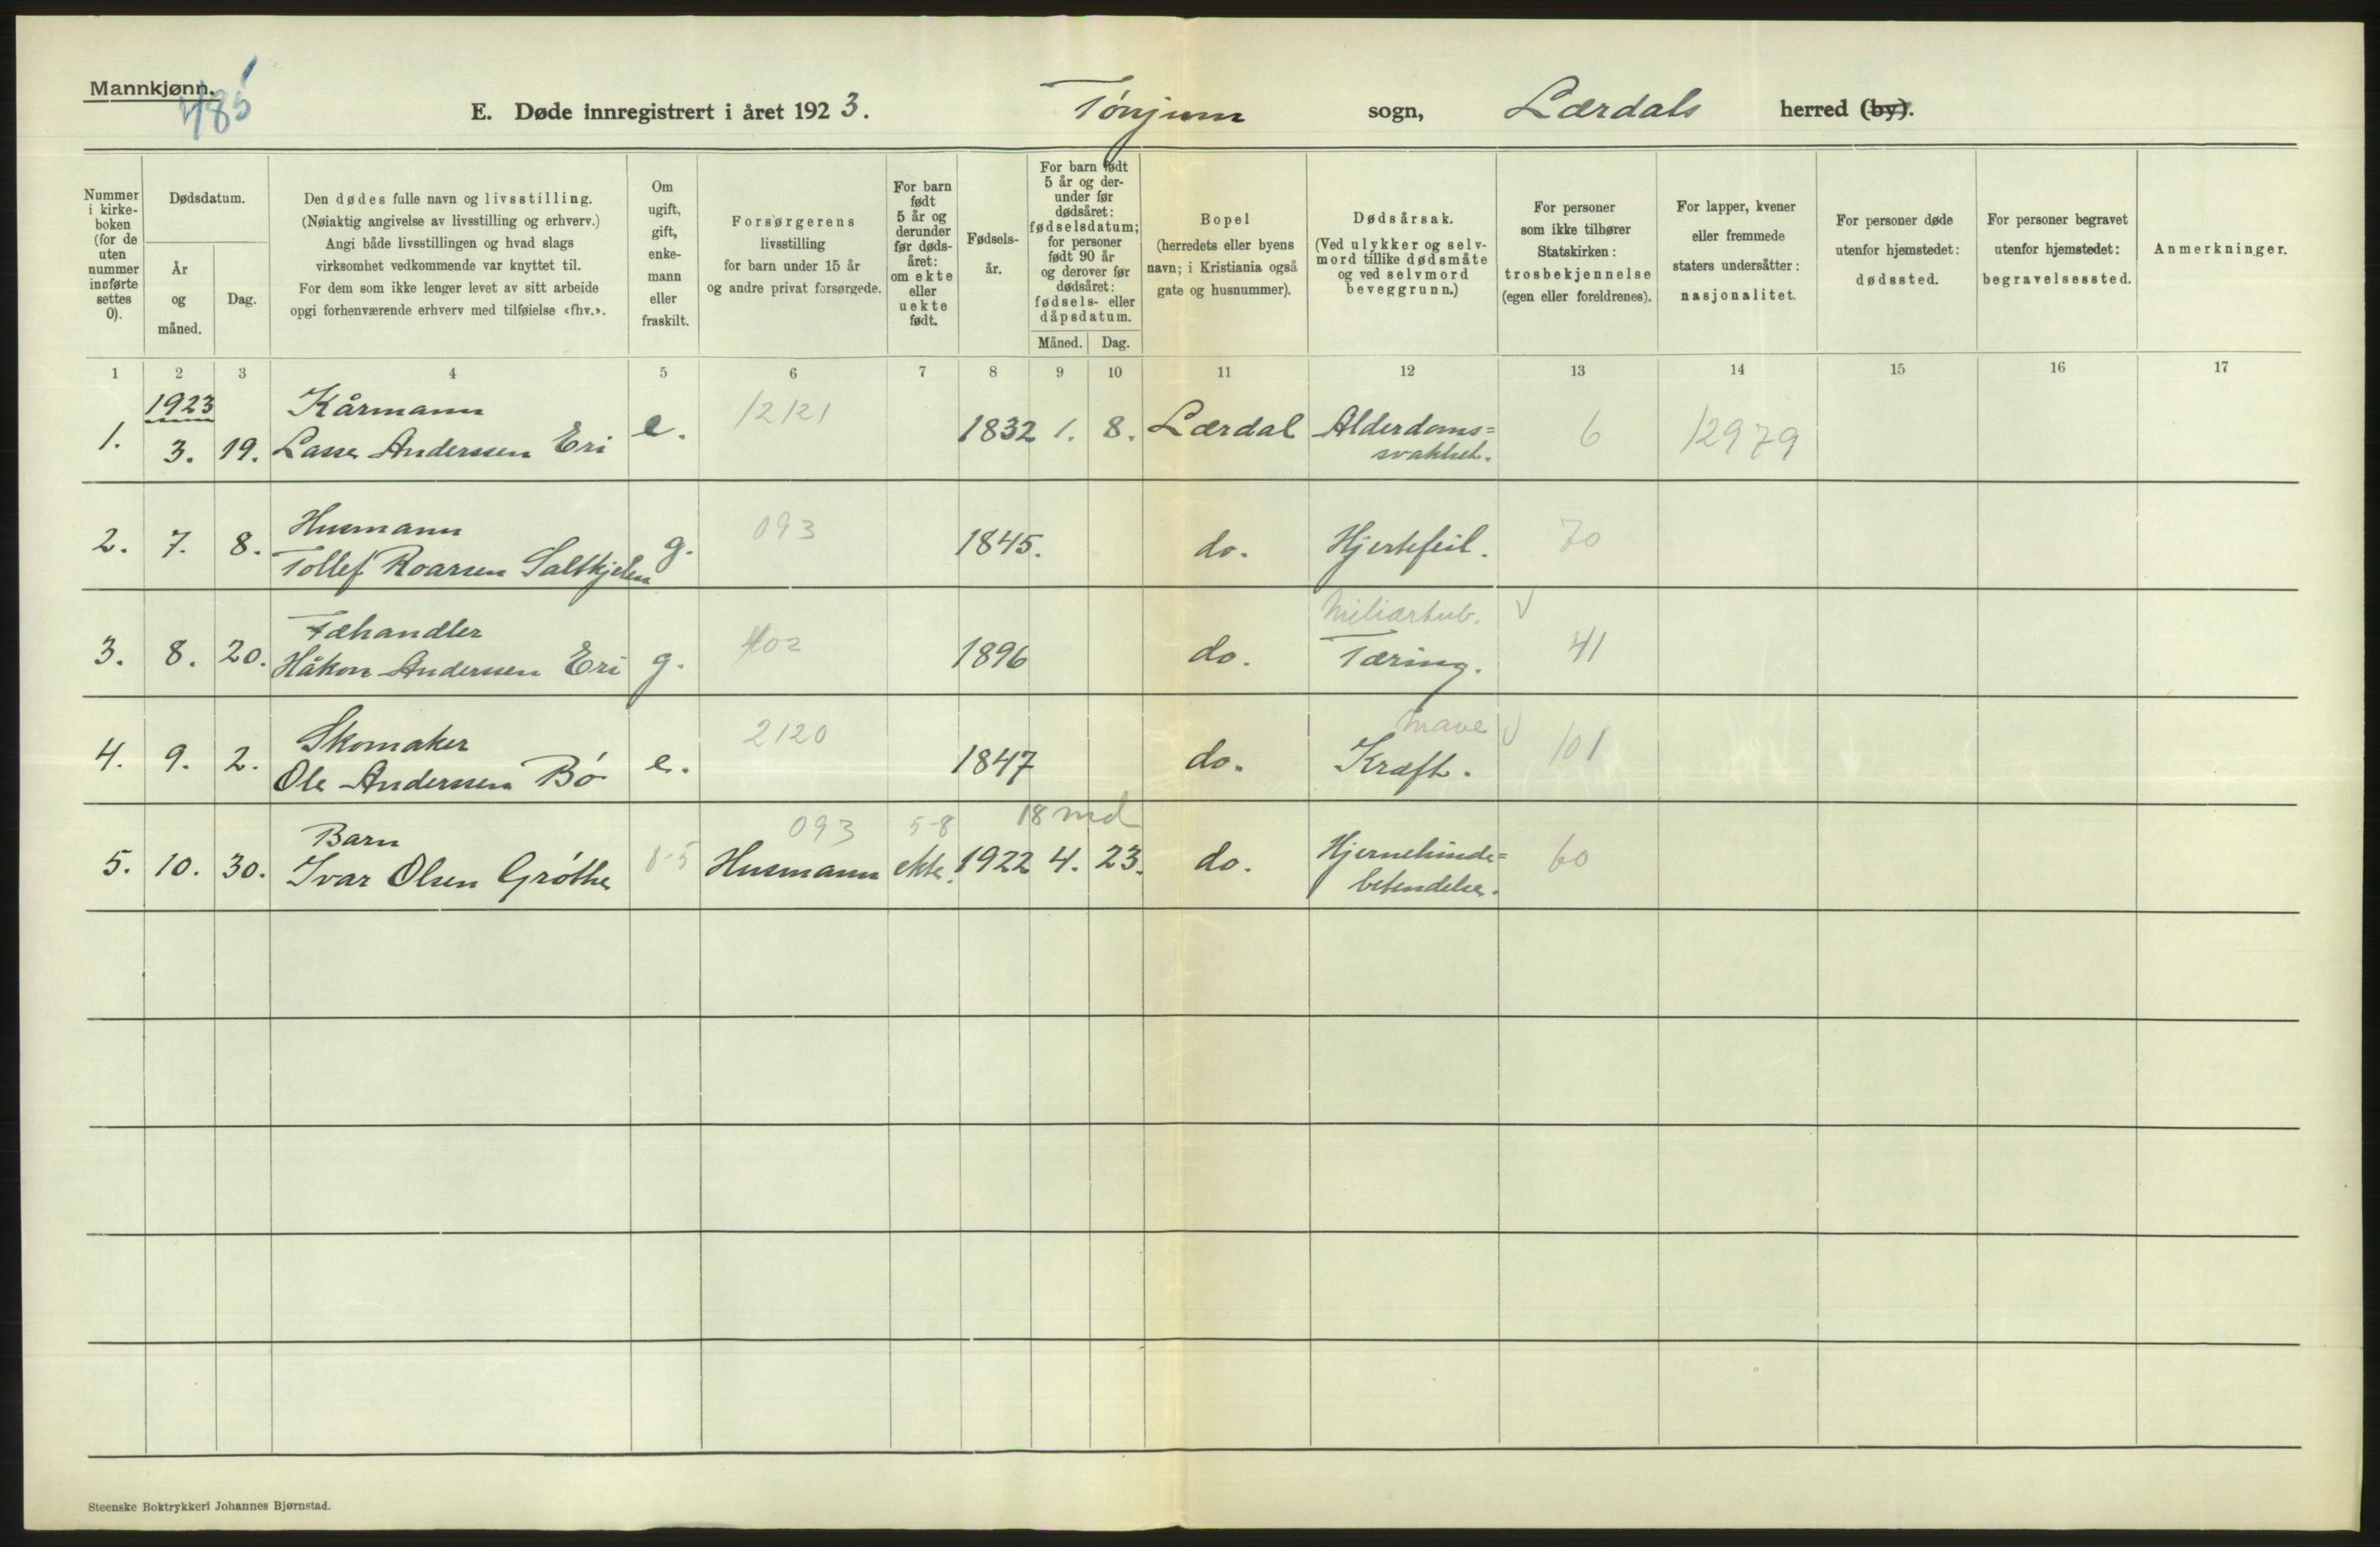 Mannkjønn.
485
E. Døde innregistrert i året 1923. Tønjum sogn, Lærdals herred (by).
Nummer i kirkeboken (for de uten nummer innførte settes 0).
Dødsdatum.
År og måned.
Dag.
Den dødes fulle navn og livsstilling.
(Nøiaktig angivelse av livsstilling og erhverv.)
Angi både livsstillingen og hvad slags
virksomhet vedkommende var knyttet til.
For dem som ikke lenger levet av sitt arbeide
opgi forhenværende erhverv med tilføielse «fhv.».
Om ugift, gift, enkemann eller fraskilt.
Forsørgerens
livsstilling
for barn under 15 år
og andre privat forsørgede.
For barn født 5 år og derunder før dødsåret: om ekte eller uekte født.
Fødselsår.
For barn født 5 år og derunder før dødsåret: fødselsdatum; for personer født 90 år og derover før dødsåret: fødsels- eller dåpsdatum.
Måned. Dag.
Bopel
(herredets eller byens
navn; i Kristiania også
gate og husnummer).
Dødsårsak.
(Ved ulykker og selvmord tillike dødsmåte og ved selvmord beveggrunn.)
For personer
som ikke tilhører
Statskirken:
trosbekjennelse
(egen eller foreldrenes).
For lapper, kvener
eller fremmede
staters undersåtter:
nasjonalitet.
For personer døde
utenfor hjemstedet:
dødssted.
For personer begravet
utenfor hjemstedet:
begravelsessted.
Anmerkninger.
1 2 3 4 5 6 7 8 9 10 11 12 13 14 15 16 17
1923 Kårmann 12121
1. 3. 19. Lasse Anderssen Eri e. 1832 1. 8. Lærdal Alderdoms= svakhet. 6 12979
Husmann 093
2. 7. 8. Tollef Roarsen Saltkjelen g. 1845. do. Hjertefeil. 70
Fæhandler 402 Miliærtub. V
3. 8. 20. Håkon Anderssen Eri g. 1896 do. Tæring. 41
Skomaker 2120 Mave V
4. 9. 2. Ole Anderssen Bø e. 1847 do. Kræft. 101
Barn 093 5-8 18 md
5. 10. 30. Ivar Olsen Grøthe 0-5 Husmann ekte. 1922 4. 23. do. Hjernehinde= betendelse. 60
Steenske Boktrykkeri Johannes Bjørnstad.